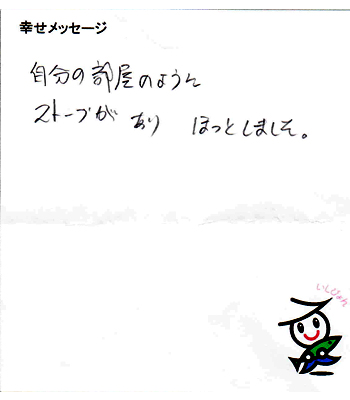 幸せメッセージ
自分の部屋のように
ストーブが あり ほっとしました。